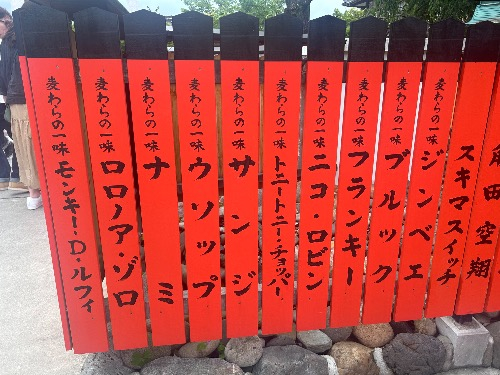 麦わらの一味 モンキー・D・ルフィ
麦わらの一味 ロロノア・ゾロ
麦わらの一味 ナミ
麦わらの一味 ウソップ
麦わらの一味 サンジ
麦わらの一味 トニートニー・チョッパー
麦わらの一味 ニコ・ロビン
麦わらの一味 フランキー
麦わらの一味 ブルック
麦わらの一味 ジンベエ
スキマスイッチ
田空翔